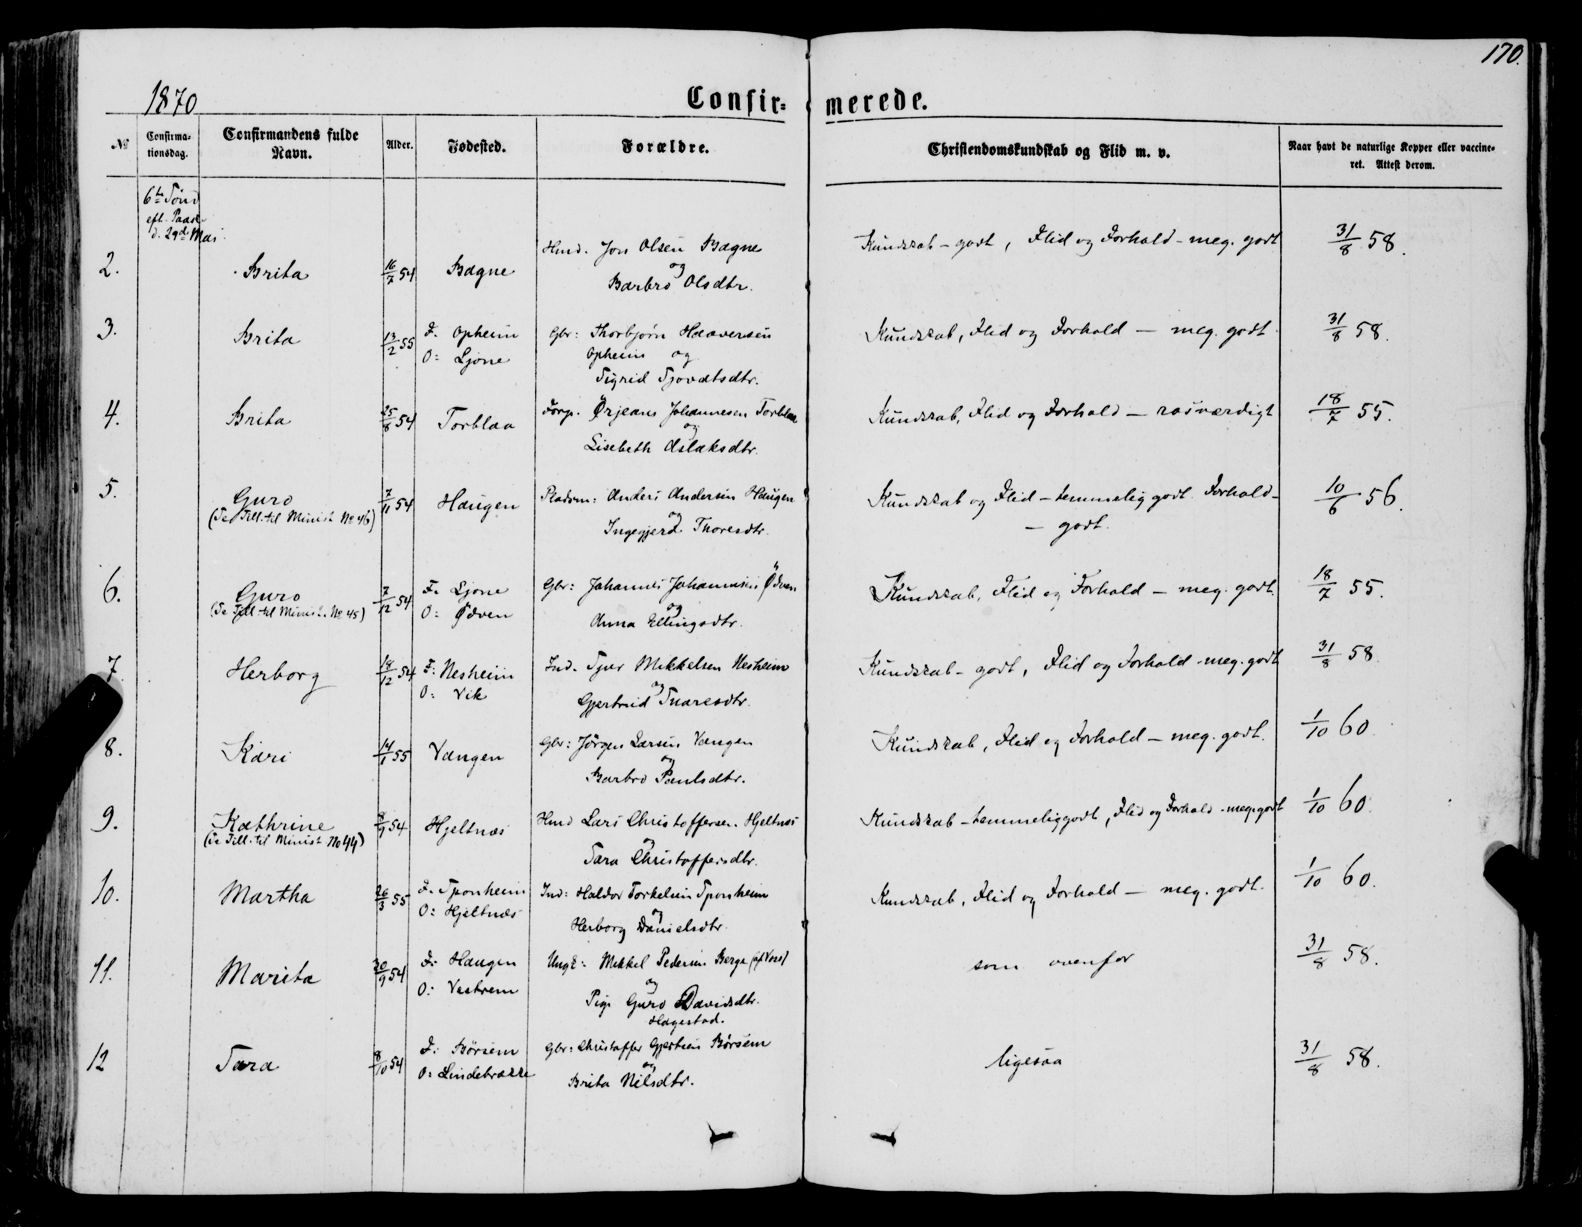 170.
1870
Confir= merede.
No
Confirma-
tionsdag.
Confirmandens fulde
Navn.
Alder.
Fødested.
Forældre.
Christendomskundskab og Flid m. v.
Naar havt de naturlige Kopper eller vaccine-
ret. Attest derom.
6te Sønd
eft. Paaske
d. 29d Mai
2. Brita 16/7 54 Bagne Hmd. Jon Olsen Bagne
og
Barbro Olsdtr. Kundskab - godt, Flid og Forhold - meg. godt 31/8 58.
3. Brita 13/2 55 F: Opheim
O: Ljone Gbr: Thorbjørn Haaversen
Opheim og
Sigrid Sjovatsdtr. Kundskab, Flid og Forhold — meg. godt 31/8 58.
4. Brita 25/8 54 Torblaa Forp. Ørjeans Johannesen Torblaa
og
Lisebeth Aslaksdtr. Kundskab, Flid og Forhold — rosværdigt 18/7 55.
5. Guro
(Se Till. til Minist No 46) 7/11 54 Haugen Pladsm: Anders Andersen Haugen
og
Ingegjerd Thoresdtr. Kundskab og Flid - temmelig godt. Forhold -
— godt. 10/6 56.
6. Guro
(Se Till. til Minist. No 45) 7/12 54 F: Ljone
O: Ødven Gbr: Johannes Johannesen Ødven
og
Anna Ellingsdtr. Kundskab, Flid og Forhold — meg. godt. 18/7 55.
7 Herborg 18/12 54 F: Nesheim
O: Vik Ind. Sjur Mikkelsen Nesheim
og
Gjertrud Snaresdtr. Kundskab - godt, Flid og Forhold - meg. godt 31/8 58
8. Kari 14/1 55 Vangen Gbr: Jørgen Larsen Vangen
og
Barbro Paulsdtr. Kundskab, Flid og Forhold — meg. godt. 1/10 60.
9. Kathrine
(Se Till. til Minist No 44) 54 Hjeltnæs Hmd Lars Christoffersen Hjeltnæs
og
Sara Christoffersdtr. Kundskab - temmelig godt, Flid og Forhold - meg. godt 1/10 60.
10. Martha 26/3 55 F. Sponheim
O: Hjeltnæs Ind: Haldor Torkelsen Sponheim
og
Herborg Danielsdtr. Kundskab, Flid og Forhold — meg. godt. 1/10 60.
11. Marita 20/9 54 F: Haugen
O: Vestrem Ungk: Mikkel Pedersen Berge (af Voss)
og
Pige Guro Davidsdtr.
Hagestad. som ovenfor 31/8 58.
12 Sara 8/10 54 F: Børsem
O: Lindebrække Gbr: Christoffer Gjertsen Børsem
og
Brita Nilsdtr. ligesaa 31/8 58.